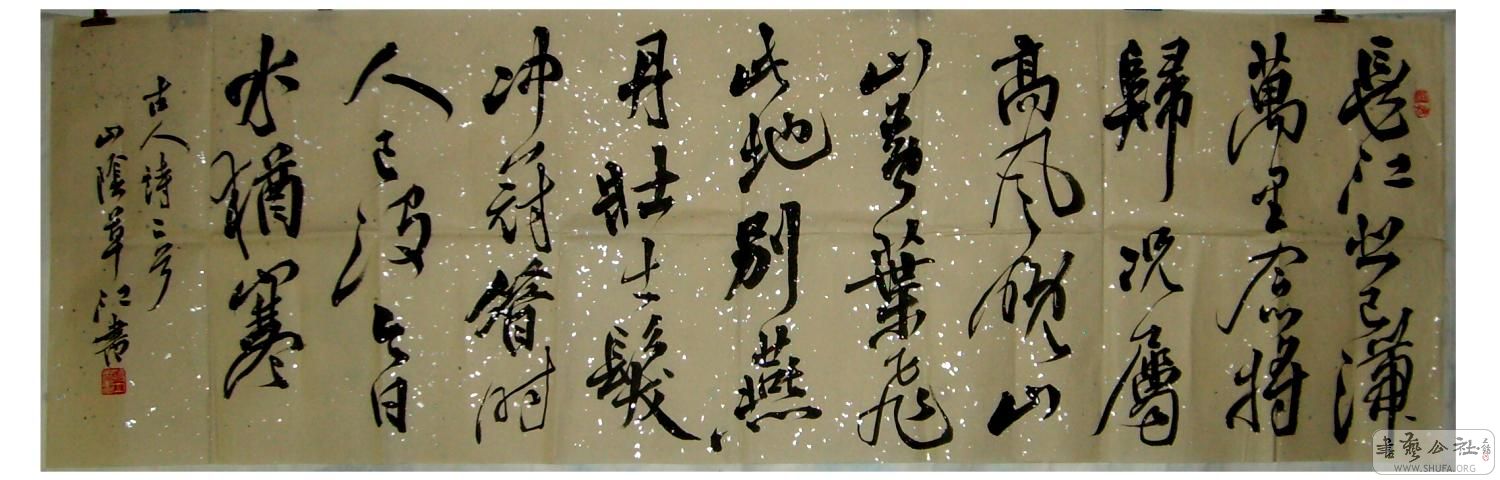 長江悲已滯
萬里念將
歸況屬
高風晚山
山黃葉飛
此地別燕
丹壯士髮
沖冠昔時
人已沒今日
水猶寒
古人詩二首
山陰草江書
書藝公社
WWW.SHUFA.ORG